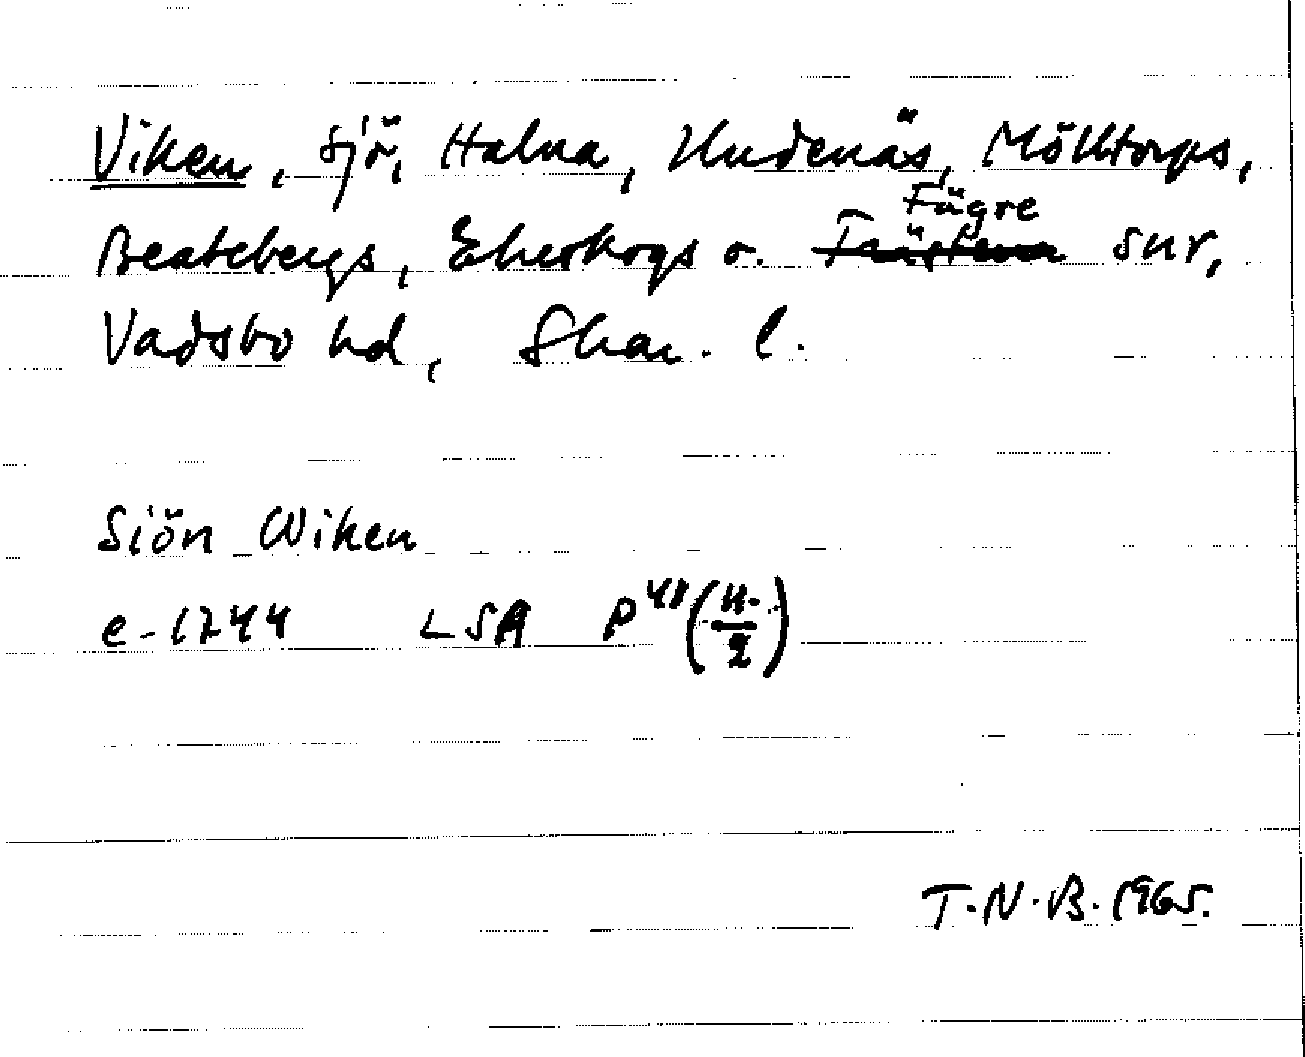 Viken, sjö, Halna, Undenäs, Mölltorps,
Beatebergs, Ekeskogs o. Fägre snr,
Vadsbo hd, Skar. l.
Siön Wiken
e-1744 LSA P 41 (11./2)
T.N.B. 1965.